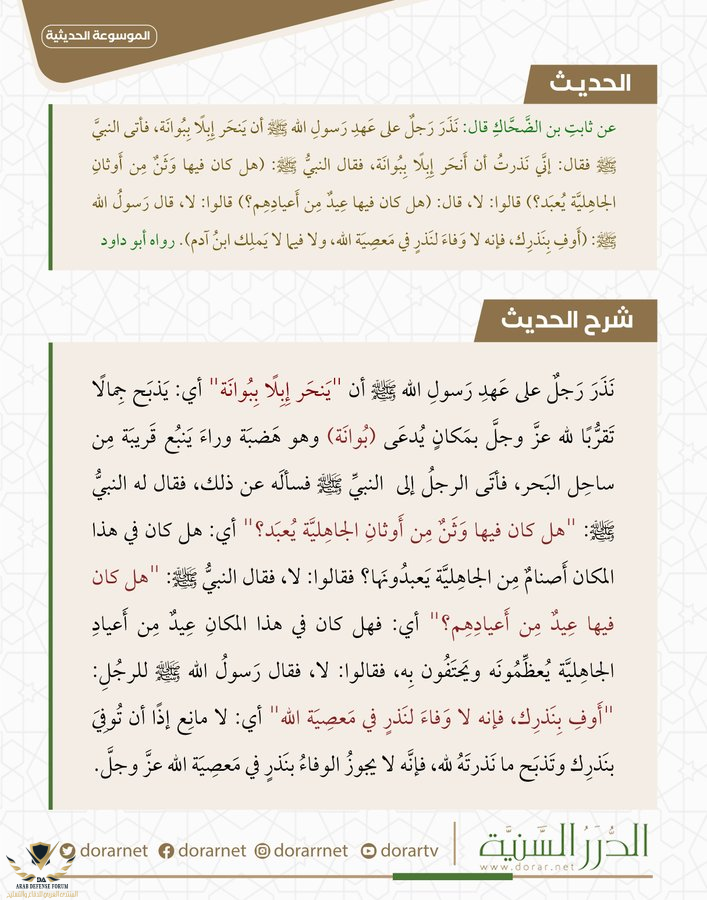 الموسوعة الحديثية
الحديث
عن ثابتِ بن الضَّحَّاكِ قال: نَذَرَ رَجلٌ على عَهدِ رَسولِ الله ﷺ أن يَنحَر إِبلًا بِبُوانَة، فأتى النبيَّ
ﷺ فقال: إنَّي نَذرتُ أن أَنحَر إِبلًا بِبُوانَة، فقال النبيُّ ﷺ: (هل كان فيها وَثَنٌ مِن أَوثانِ
الجاهليَّة يُعبَد؟) قالوا: لا، قال: (هل كان فيها عِيدٌ مِن أَعيادِهِم؟) قالوا: لا، قال رَسولُ الله
ﷺ: (أَوفِ بِنَذرِك، فإنه لا وَفاءَ لنَذرٍ في مَعصِيَة الله، ولا فيما لا يَملِك ابنُ آدم). رواه أبو داود
شرح الحديث
نَذَرَ رَجلٌ على عَهدِ رَسولِ الله ﷺ أن "يَنحَر إِبِلًا بِبُوانَة" أي: يَذبَح جِمالًا
تَقرُّبًا لله عزَّ وجلَّ بمَكانٍ يُدعَى (بُوانَة) وهو هَضبَة وراءَ يَنبُع قَريبَة مِن
ساحِل البَحر، فأتَى الرجلُ إلى النبيِّ ﷺ فسألَه عن ذلك، فقال له النبيُّ
ﷺ: "هل كان فيها وَثَنٌ مِن أَوثانِ الجاهِليَّة يُعبَد؟" أي: هل كان في هذا
المكان أَصنامٌ مِن الجاهِليَّة يَعبدُونَها؟ فقالوا: لا، فقال النبيُّ ﷺ: "هل كان
فيها عِيدٌ مِن أَعيادِهِم؟" أي: فهل كان في هذا المكانِ عِيدٌ مِن أَعيادِ
الجاهِليَّة يُعظِّمُونَه ويَحتَفُون بِه، فقالوا: لا، فقال رَسولُ الله ﷺ للرجُلِ:
"أَوفِ بِنَذرِك، فإنه لا وَفاءَ لنَذرٍ في مَعصِيَة الله" أي: لا مانِع إذًا أن تُوفِيَ
بنَذرِك وتَذبَح ما نَذرتَهُ لله، فإنَّه لا يجوزُ الوفاءُ بنَذرٍ في مَعصِيَة الله عزَّ وجلَّ.
dorarnet dorarnet dorarrnet dorartv
الدُّرَرُ السَّنِيَّة
www.dorar.net
DA
ARAB DEFENSE FORUM
المنتدى العربي للدفاع والتسليح